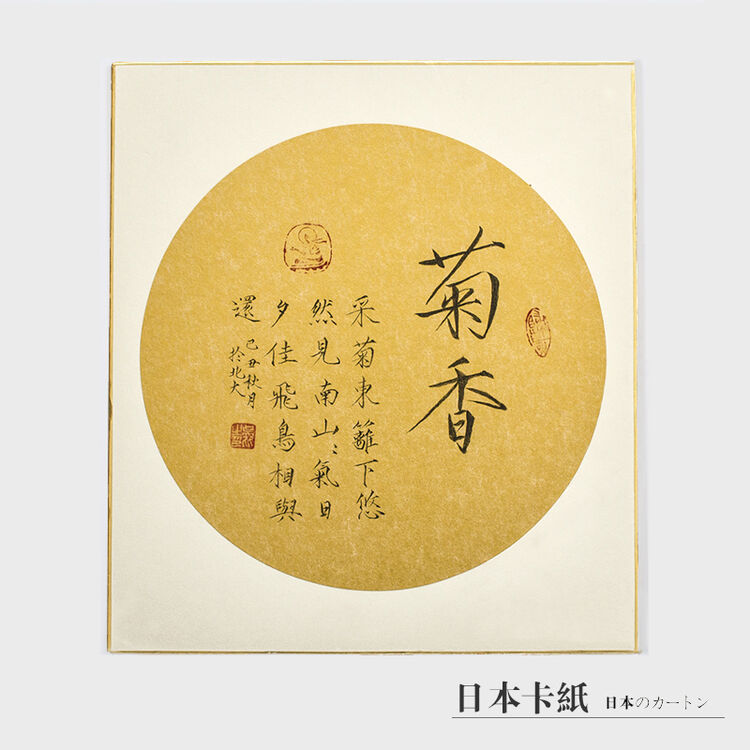 菊香
采菊東籬下悠
然見南山〻氣日
夕佳飛鳥相與
還
己丑秋月
於北大
日本卡紙
日本のカートン